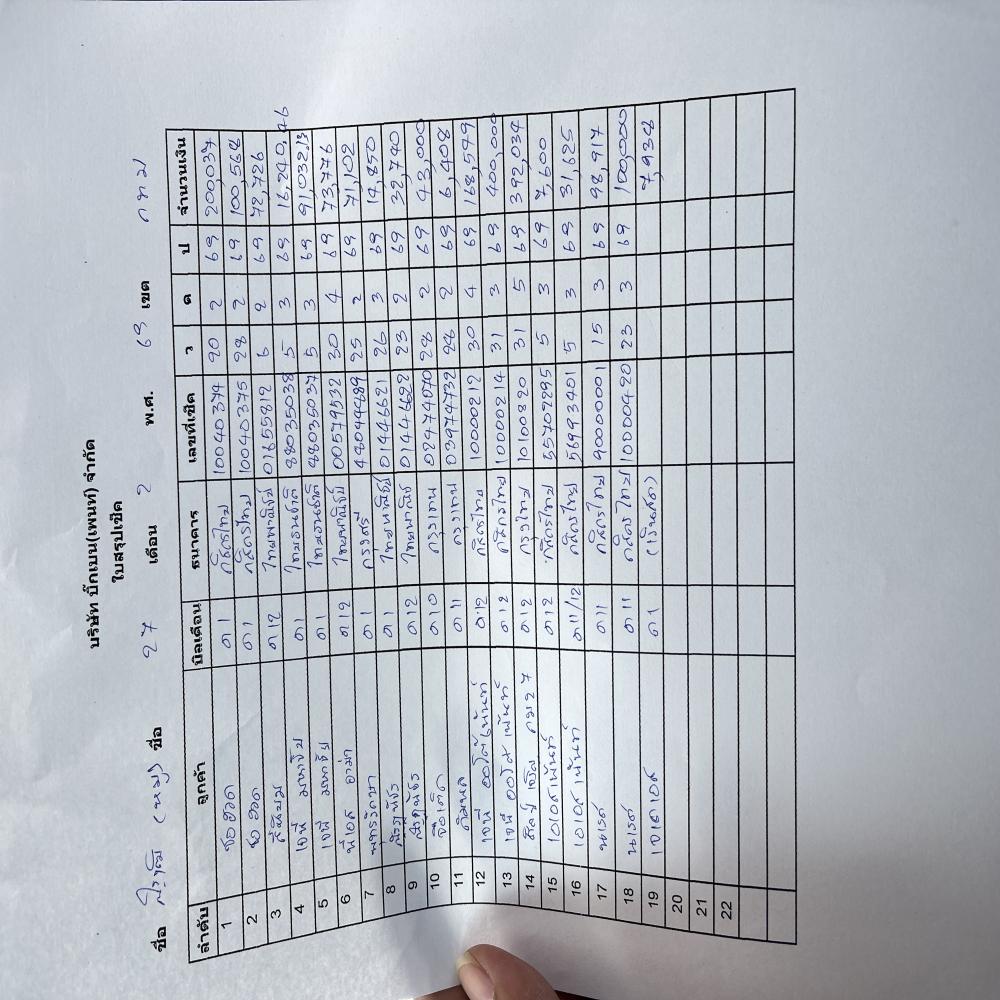 บริษัท บิ๊กเบน(เพนท์) จำกัด
ใบสรุปเช็ค
ชื่อ (หมู) ชื่อ 27 เดือน 2 พ.ศ. 69 เขต กทม
ลำดับ ลูกค้า บิลเดือน ธนาคาร เลขที่เช็ค ว ด ป จำนวนเงิน
1 ชออวด ด 1 กสิกรไทย 10040374 20 2 69 200,037
2 ชออวด ด 1 กสิกรไทย 10040375 28 2 69 100,568
3 ด 12 ไทยพาณิชย์ 01655812 6 2 69 72,726
4 เจพี มหาชัย ด 1 ไทยธนชาติ 88035038 5 3 69 16,240.46
5 เจพี มหาชัย ด 1 ไทยธนชาติ 88035037 5 3 69 91,032.13
6 พีเอส อาม่า ด 12 ไทยพาณิชย์ 00579532 30 4 69 73,776
7 พุทธรักษา ด 1 กรุงศรี 48044489 25 2 69 71,102
8 ด 1 ไทยพาณิชย์ 01446621 26 3 69 14,850
9 ด 12 ไทยพาณิชย์ 01446622 23 2 69 32,740
10 จิ๊บเต็ก ด 10 กรุงเทพ 02474070 28 2 69 43,000
11 ด 11 กรุงเทพ 03974732 28 2 69 6,408
12 เจพี ออโต้เพ้นท์ ด.12 กสิกรไทย 10000212 30 4 69 168,579
13 เจพี ออโต้ เพ้นท์ ด 12 กสิกรไทย 10000214 31 3 69 400,000
14 ศิลป์ เจริญ ด 12 กรุงไทย 10100320 31 5 69 392,034
15 เอเอสเพ้นท์ ด 12 กสิกรไทย 55702295 5 3 69 7,600
16 เอเอสเพ้นท์ ด 11/12 กสิกรไทย 56993401 5 3 69 31,625
17 นเรศ ด 11 กสิกรไทย 90000001 15 3 69 98,917
18 นเรศ ด 11 กสิกรไทย 10000420 23 3 69 100,000
19 เจเดเอส ด 1 (เงินสด) 7,938
20
21
22